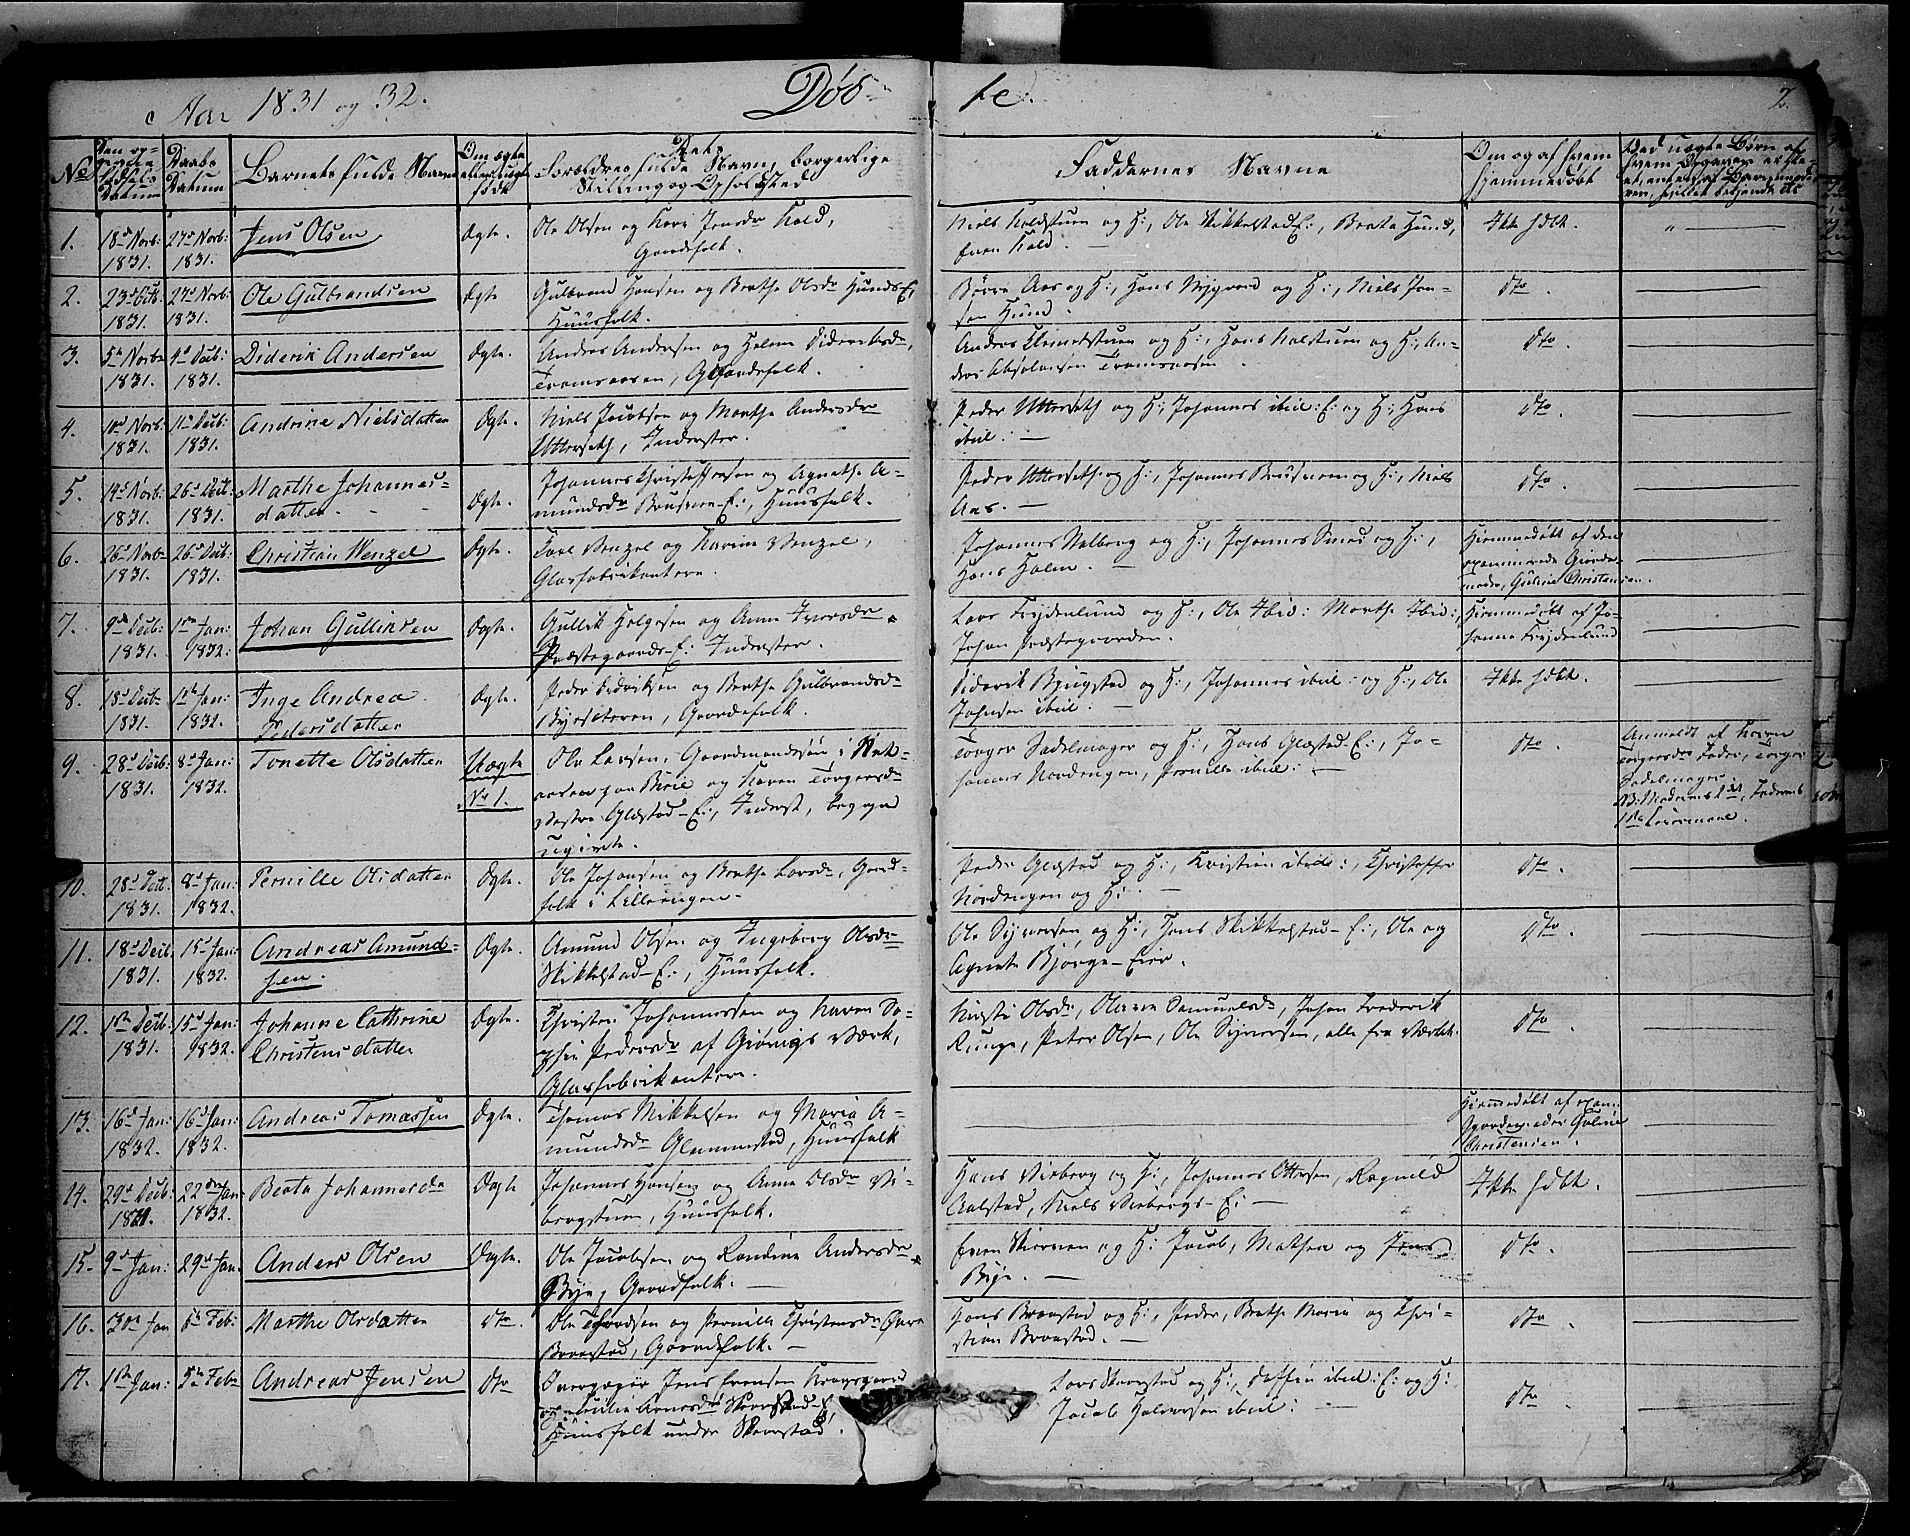 Aar 1831 og 32.
Døb-
te.
2.
No
Den op-
givne
Fødsels
Datum
Daabs
Datum
Barnets fulde Navn
Om ægte
eller uægte
født
Dets
Forældres fulde Navn, borgerlige
Stilling og Opholdsted
Faddernes Navne
Om og af hvem
hjemmedøbt
Ved uægte Børn af
hvem Opgaven er ske-
et, enten af Barnemod-
ren,
1.
18de Novb:
1831.
27de Novb:
1831.
Jens Olsen
Ægte.
Ole Olsen og Kari Jensdr Kold,
Gaardfolk.
Niels Koldstuen og H:, Ole Skikkelstad E:, Berta Hund,
Even Kold.
Ikke hdbt.
2.
23de Octb:
1831.
27de Novb:
1831.
Ole Gulbrandsen
Ægte
Gulbrand Hansen og Berthe Olsdr Hunds E:
Huusfolk.
Børre Aas og H:, Hans Nygaard og H:, Niels Jan-
sen Hund.
dto.
3.
5te Novb:
1831.
4de Decb:
1831.
Diderik Andersen
Ægte.
Anders Andersen og Helene Dideriksdr,
Tromsnæsen, Gaardfolk.
Anders Klemetstuen og H:, Hans Kolstuen og H:, An-
ders Absolonsen Tromsnæsen
dto.
4.
10de Novb:
1831.
11te Decb:
1831.
Andrine Nielsdatter
Ægte.
Niels Jacobsen og Marthe Andersdr
Ullerseth, Inderster.
Peder Ullerseth og H: Johannes ibid: E: og H: Hans
ibid:
dto.
5.
14de Novb:
1831.
26de Decb:
1831.
Marthe Johannes-
datter.
Ægte.
Johannes Christoffersen og Agnethe A-
mundsdr Brusveen-E:, Huusfolk.
Peder Ullerseth og H:, Johannes Brusveen og H:, Niels
Aas.
dto.
6.
26de Novb:
1831.
26de Decb:
1831.
Christian Wenzel
Ægte.
Carl Wenzel og Karine Wenzel,
Glasfabrikantere.
Johannes Valberg og H:, Johannes Smed og H:,
Hans Holm.
Hiemmedøbt af den
examinerede Giorde-
moder, Guline Christensen.
7.
9de Decb:
1831.
1ste Jan:
1832.
Johan Gulliksen
Ægte.
Gullik Helgesen og Anne Iversdr
Præstegaards-E: Inderster.
Lars Frydenlund og H:, Ole Ibid: Marthe Ibid:,
Johan Præstegaarden.
Hiemmedøbt af Jo-
hanne Frydenlund
8.
18de Decb:
1831.
1ste Jan:
1832.
Inge Andrea
Pedersdatter
Ægte.
Peder Didriksen og Berthe Gulbrandsdr
Byesæteren, Gaardfolk.
Diderik Bjugstad og H:, Johannes ibid: og H:, Ole
Johnsen ibid:
Ikke hdbt.
9.
28de Decb:
1831.
8de Jan:
1832.
Tonette Olsdatter
Uægte
No 1.
Ole Larsen, Gaardmandssøn i
paa Birie og Karen Torgersdr
Vestre Glæstad-E:, Inderst, begge
ugivte.
Torger Sadelmager og H:, Hans Glæstad-E:, Jo-
hannes Nordengen, Pernille ibid:
dto.
Anmeldt af Karen
Torgersdrs Fader, Torger
Sadelmager.
B: Moderens 1ste, Faderens
1ste Leiermaal.
10.
28de Decb:
1831.
8de Jan:
1832.
Pernille Olsdatter
Ægte.
Ole Johansen og Berthe Larsdr, Gaard-
folk i Lilleengen.
Peder Glæstad og H:, Kristian ibid:, Christoffer
Nordengen og H:
dto.
11.
18de Decb:
1831.
15de Jan:
1832.
Andreas Amund-
sen.
Ægte.
Amund Olsen og Ingeborg Olsdr
Skikkelstad-E:, Huusfolk.
Ole Syversen og H:, Hans Skikkelstad-E:, Ole og
Agnete Bjørge-Eier.
dto.
12.
1ste Decb:
1831.
15de Jan:
1832.
Johanne Cathrine
Christensdatter
Ægte.
Christen Johannessen og Karen So-
phie Pedersdr af Giøvigs Værk,
Glasfabrikantere.
Kirsti Olsdr, Olea Samuelsdr, Johan Frederik
Runge, Peter Olsen, Ole Syversen, alle fra Værket.
dto.
13.
16de Jan:
1832.
16de Jan:
1832.
Andreas Tomassen
Ægte.
Thomas Mikkelsen og Maria A-
mundsdr Glemmestad, Huusfolk
Hiemmedøbt af exam.
Gjordemoder Guline
Christensen.
14.
29de Decb:
1831.
22den Jan:
1832.
Berta Johannesdr
Ægte
Johannes Hansen og Anne Olsdr Vi-
bergstuen, Huusfolk.
Hans Vieberg og H:, Johannes Ottesen, Ragnild
Aalstad, Niels Viebergs-E:
Ikke hdbt.
15.
9de Jan:
29de Jan.
Anders Olsen
Ægte.
Ole Jacobsen og Randine Andersdr
Bye, Gaardfolk.
Even Skierven og H: Jacob, Mathea og Jens
Bye.
dto.
16.
3die Jan
5te Feb:
Marthe Olsdatter
dto.
Ole Thordsen og Pernille Christensdr Øvre
Braastad, Gaardfolk.
Hans Braastad og H:, Peder, Berthe Maria og Chri-
stian Braastad.
dto
17.
1ste Jan:
5te Feb
Andreas Jensen
dto
Jens Evensen
Skovstad-E:
Huusfolk under Skovstad.
Lars Skovstad og H:, Steffen ibid: E: og H:
Jacob Halvorsen ibid:
dto.